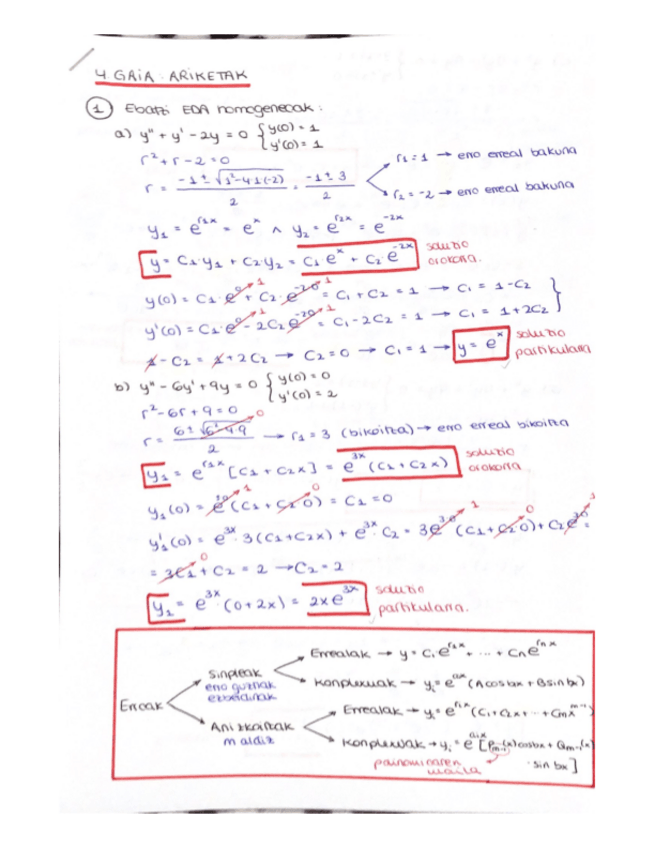 4. GAIA: ARIKETAK
① Ebatzi EDA homogeneoak:
a) y'' + y' - 2y = 0 { y(0) = 1
y'(0) = 1
r² + r - 2 = 0
r = (-1 ± √(1² - 4·1(-2)))/2 = (-1 ± 3)/2
r₁ = 1 → erro erreal bakuna
r₂ = -2 → erro erreal bakuna
y₁ = e^(r₁x) = e^x ∧ y₂ = e^(r₂x) = e^(-2x)
y = C₁·y₁ + C₂y₂ = C₁e^x + C₂e^(-2x) soluzio orokorra.
y(0) = C₁·e^0 + C₂·e^(-2·0) = C₁ + C₂ = 1 → C₁ = 1 - C₂
y'(0) = C₁·e^0 - 2C₂e^(-2·0) = C₁ - 2C₂ = 1 → C₁ = 1 + 2C₂
1 - C₂ = 1 + 2C₂ → C₂ = 0 → C₁ = 1 → y = e^x soluzio partikularra
b) y'' - 6y' + 9y = 0 { y(0) = 0
y'(0) = 2
r² - 6r + 9 = 0
r = (6 ± √(6² - 4·9))/2 → r₁ = 3 (bikoitza) → erro erreal bikoitza
y₁ = e^(r₁x) [C₁ + C₂x] = e^(3x) (C₁ + C₂x) soluzio orokorra
y₁(0) = e^(3·0) (C₁ + C₂·0) = C₁ = 0
y₁'(0) = e^(3x)·3(C₁ + C₂x) + e^(3x)·C₂ = 3e^(3·0) (C₁ + C₂·0) + C₂e^(3·0) =
= 3C₁ + C₂ = 2 → C₂ = 2
y₁ = e^(3x)·(0 + 2x) = 2xe^(3x) soluzio partikularra.
Erroak
Sinpleak
erro guztiak ezberdinak
Errealak → y = C₁e^(r₁x) + ... + Cₙe^(rₙx)
Konplexuak → yᵢ = e^(ax) (A cos bx + B sin bx)
Anizkoitzak
m aldiz
Errealak → yᵢ = e^(rᵢx) (C₁ + C₂x + ... + Cₘx^(m-1))
Konplexuak → yᵢ = e^(aᵢx) [Pₘ₋₁(x) cos bx + Qₘ₋₁(x)
· sin bx]
polinomioaren maila